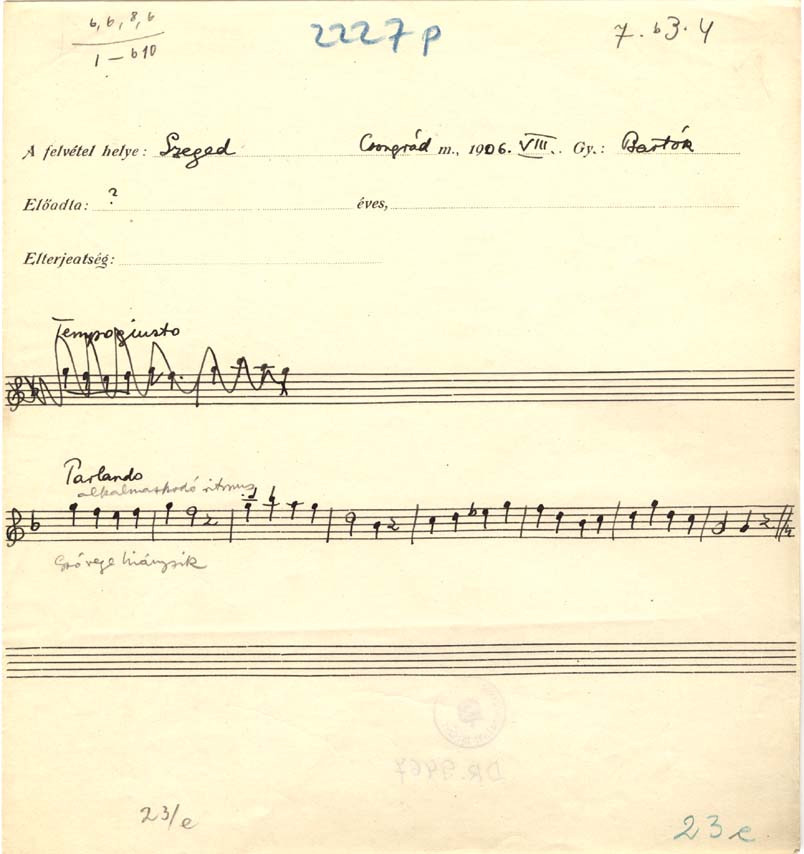 6, 6, 8, 6
1 – b10
2227 p
7. b3. 4
A felvétel helye: Szeged Csongrád m., 1906. VIII. Gy.: Bartók
Előadta: ? éves,
Elterjeatség:
Tempo giusto
Parlando
alkalmazkodó ritmus
Szövege hiányzik
DR. 9467
23/e
23 e